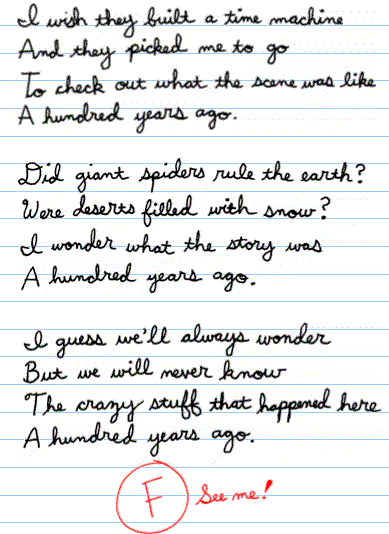 I wish they built a time machine
And they picked me to go
To check out what the scene was like
A hundred years ago.
Did giant spiders rule the earth?
Were deserts filled with snow?
I wonder what the story was
A hundred years ago.
I guess we'll always wonder
But we will never know
The crazy stuff that happened here
A hundred years ago.
F See me!